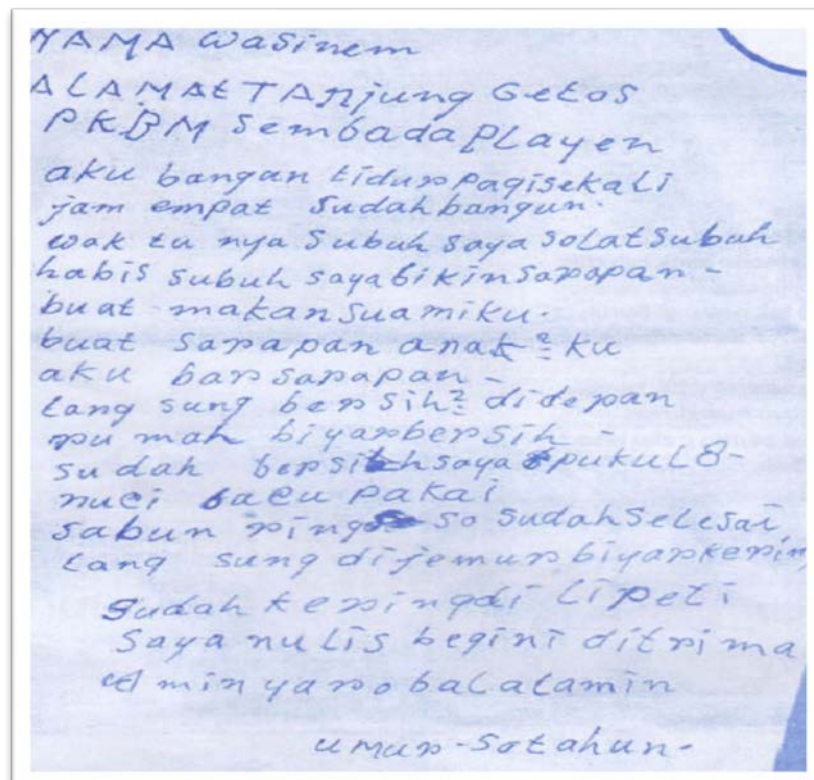 NAMA Wasinem
ALAMAt TANjung Getos
PKBM Sembada PLayen
aku bangan tidur pagisekali
jam empat Sudah bangun.
wak tu nya Subuh saya solat Subuh
habis subuh saya bikin sarapan -
buat makan Suamiku.
buat sarapan anak2 ku
aku bar sarapan -
lang sung ber sih2 didepan
ru mah biyarbersih -
sudah bersih saya pukul 8 -
nuci baeu pakai
sabun ring so sudah Selesai
lang sung dijemur biyarkerin
sudah keringdi lipeti
Saya nulis begini ditrima
Amin yarobalalamin
umur - tahun -